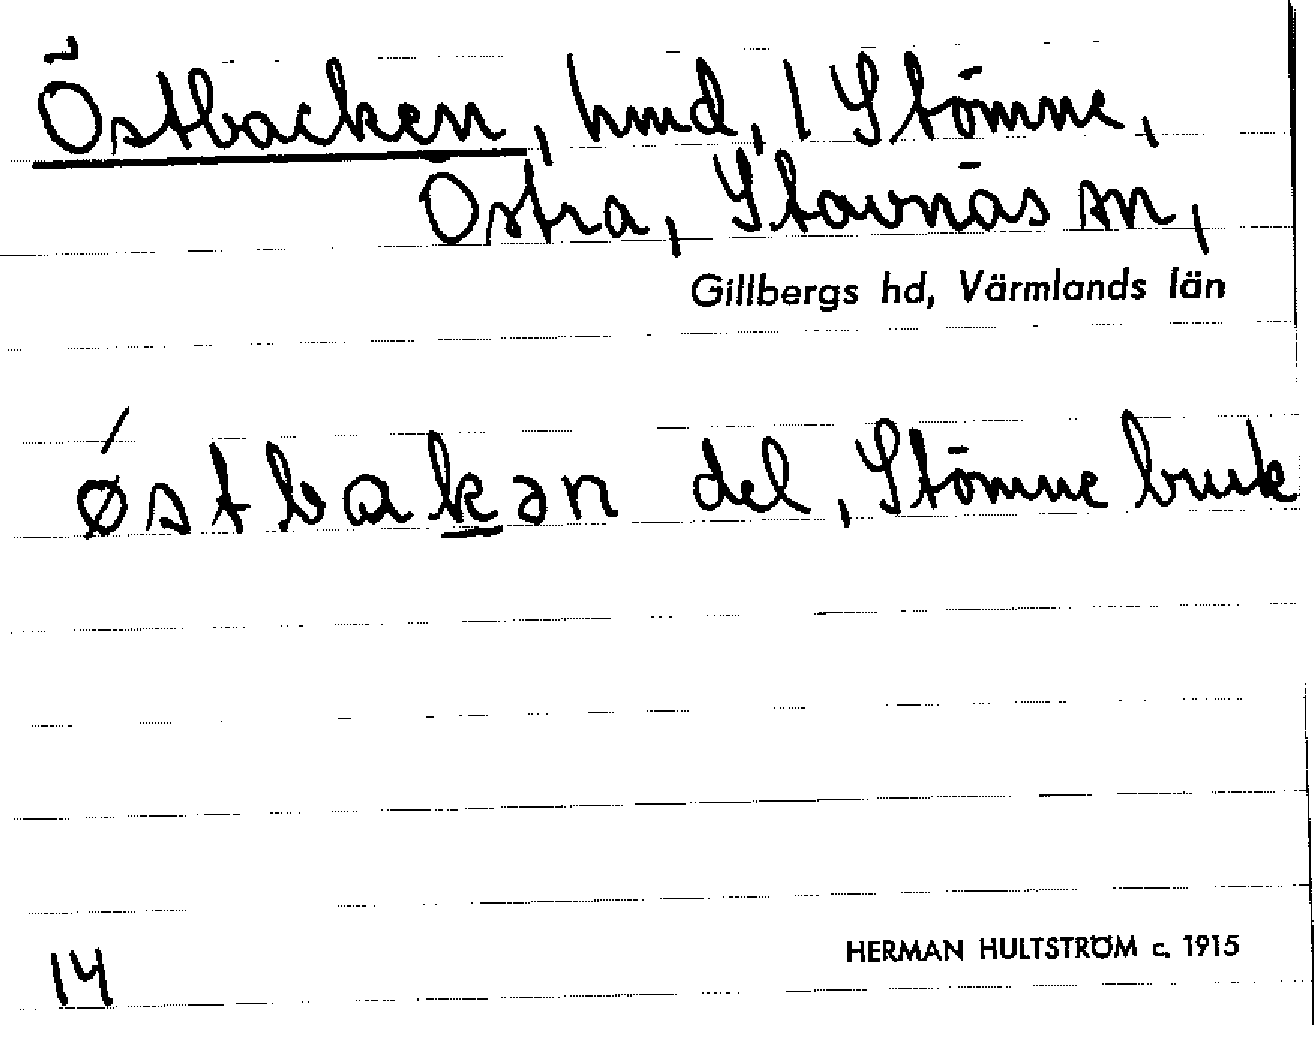 Östbacken, hmd, 1 Stömne,
Östra, Stavnäs sn,
Gillbergs hd, Värmlands län
ǿstbakən del, Stömne bruk
14
HERMAN HULTSTRÖM c. 1915